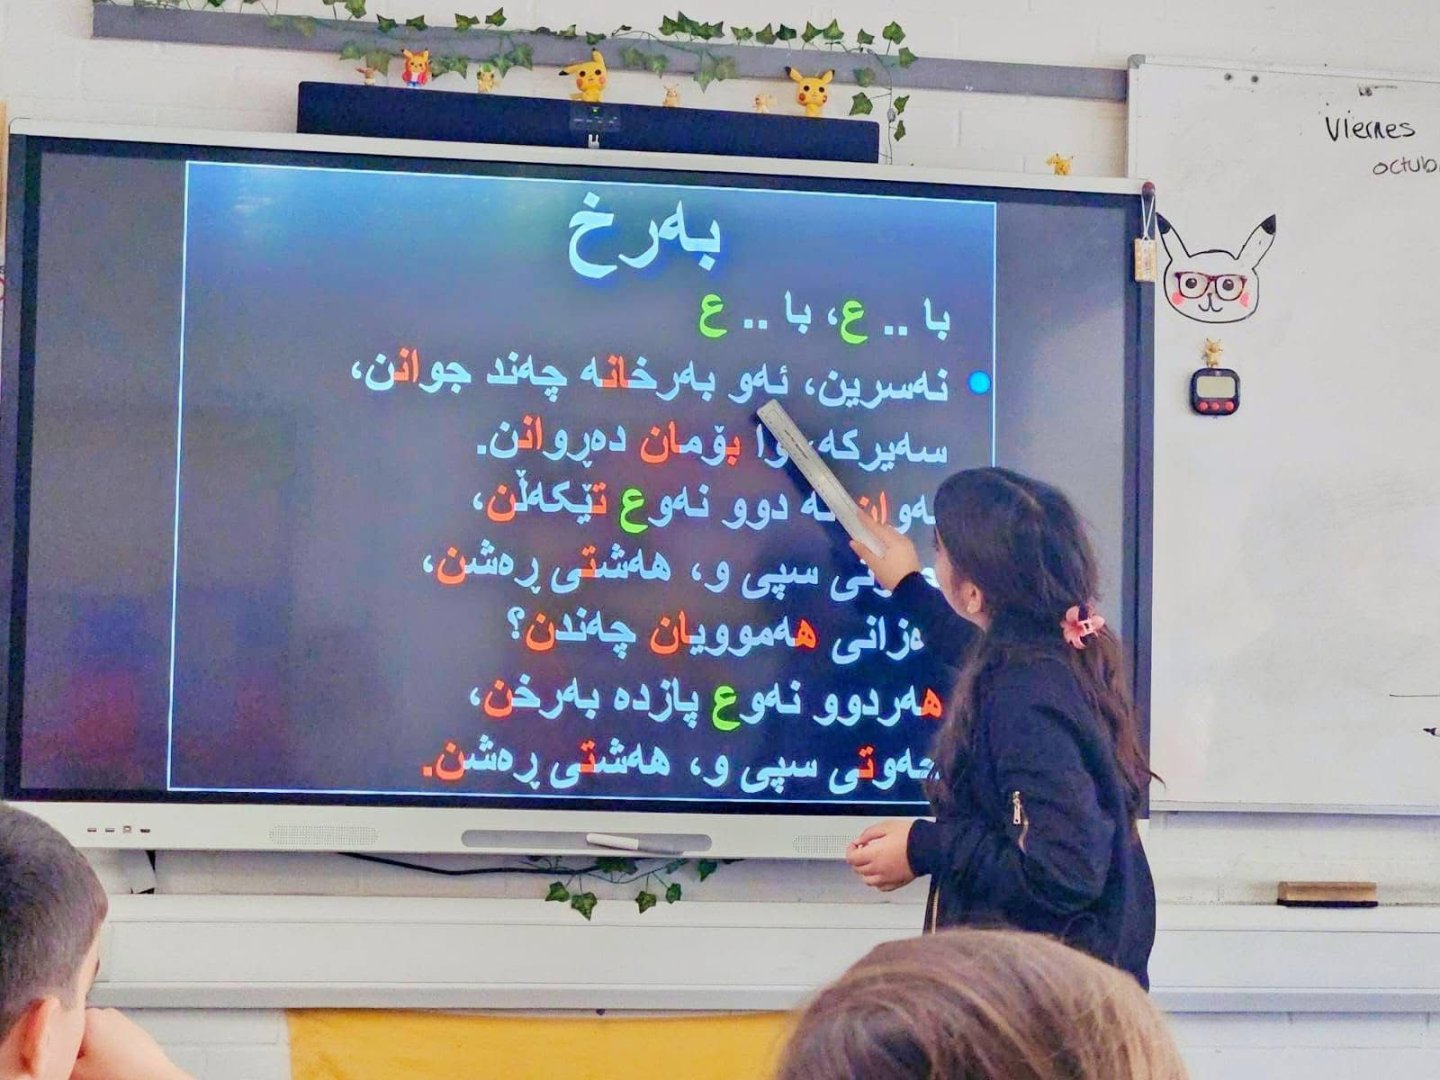 بەرخ
با .. ع، با .. ع
نەسرین، ئەو بەرخانە چەند جوانن،
سەیرکە، وا بۆمان دەڕوانن.
دوو نەوع تێکەڵن،
سپی و، هەشتی ڕەشن،
هەموویان چەندن؟
هەردوو نەوع پازدە بەرخن،
حەوتی سپی و، هەشتی ڕەشن.
Viernes